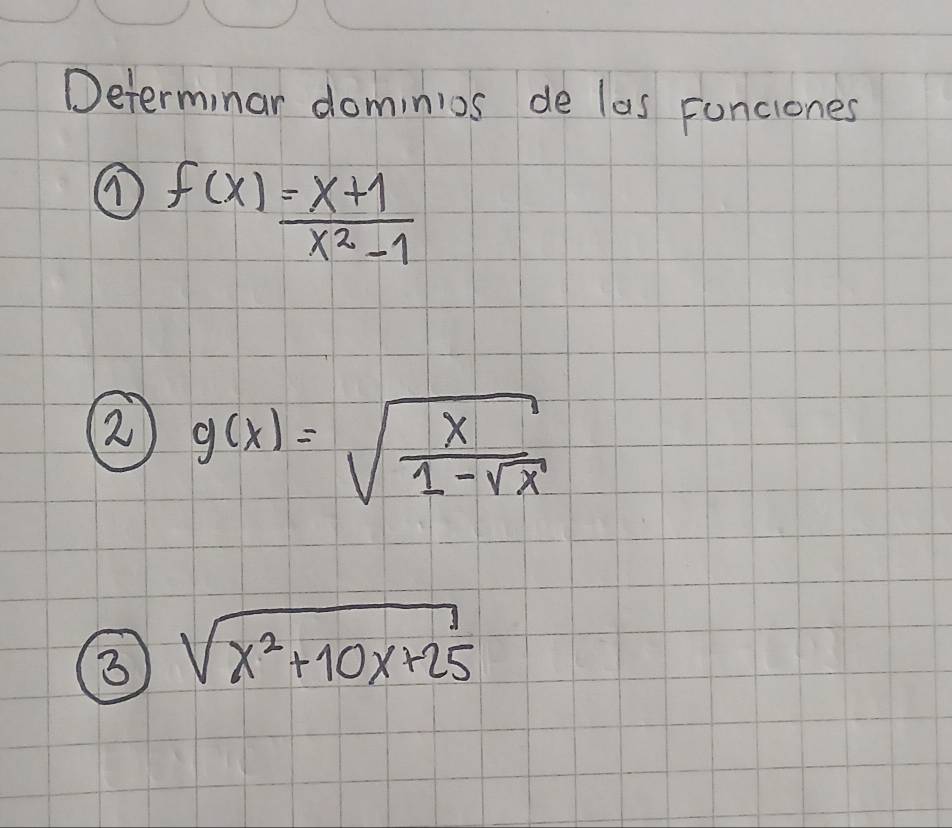 Determinar dominios de las funciones
① f(x) = x+1 / x² - 1
② g(x) = √(x / 1 - √x)
③ √x² + 10x + 25